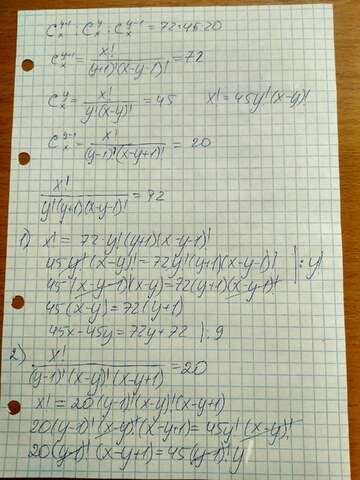 C_x^{y+1} : C_x^y : C_x^{y-1} = 72:45:20
C_x^{y+1} = x!/((y+1)!(x-y-1)!) = 72
C_x^y = x!/(y!(x-y)!) = 45    x! = 45y!(x-y)!
C_x^{y-1} = x!/((y-1)!(x-y+1)!) = 20
x!/(y!(y+1)(x-y-1)!) = 72
1) x! = 72·y!(y+1)(x-y-1)!
45y!(x-y)! = 72y!(y+1)(x-y-1)! | : y!
45(x-y-1)!(x-y) = 72(y+1)(x-y-1)!
45(x-y) = 72(y+1)
45x-45y = 72y+72 | : 9
2) x!/((y-1)!(x-y)!(x-y+1)) = 20
x! = 20(y-1)!(x-y)!(x-y+1)
20(y-1)!(x-y)!(x-y+1) = 45y!(x-y)!
20(y-1)!(x-y+1) = 45(y-1)!y